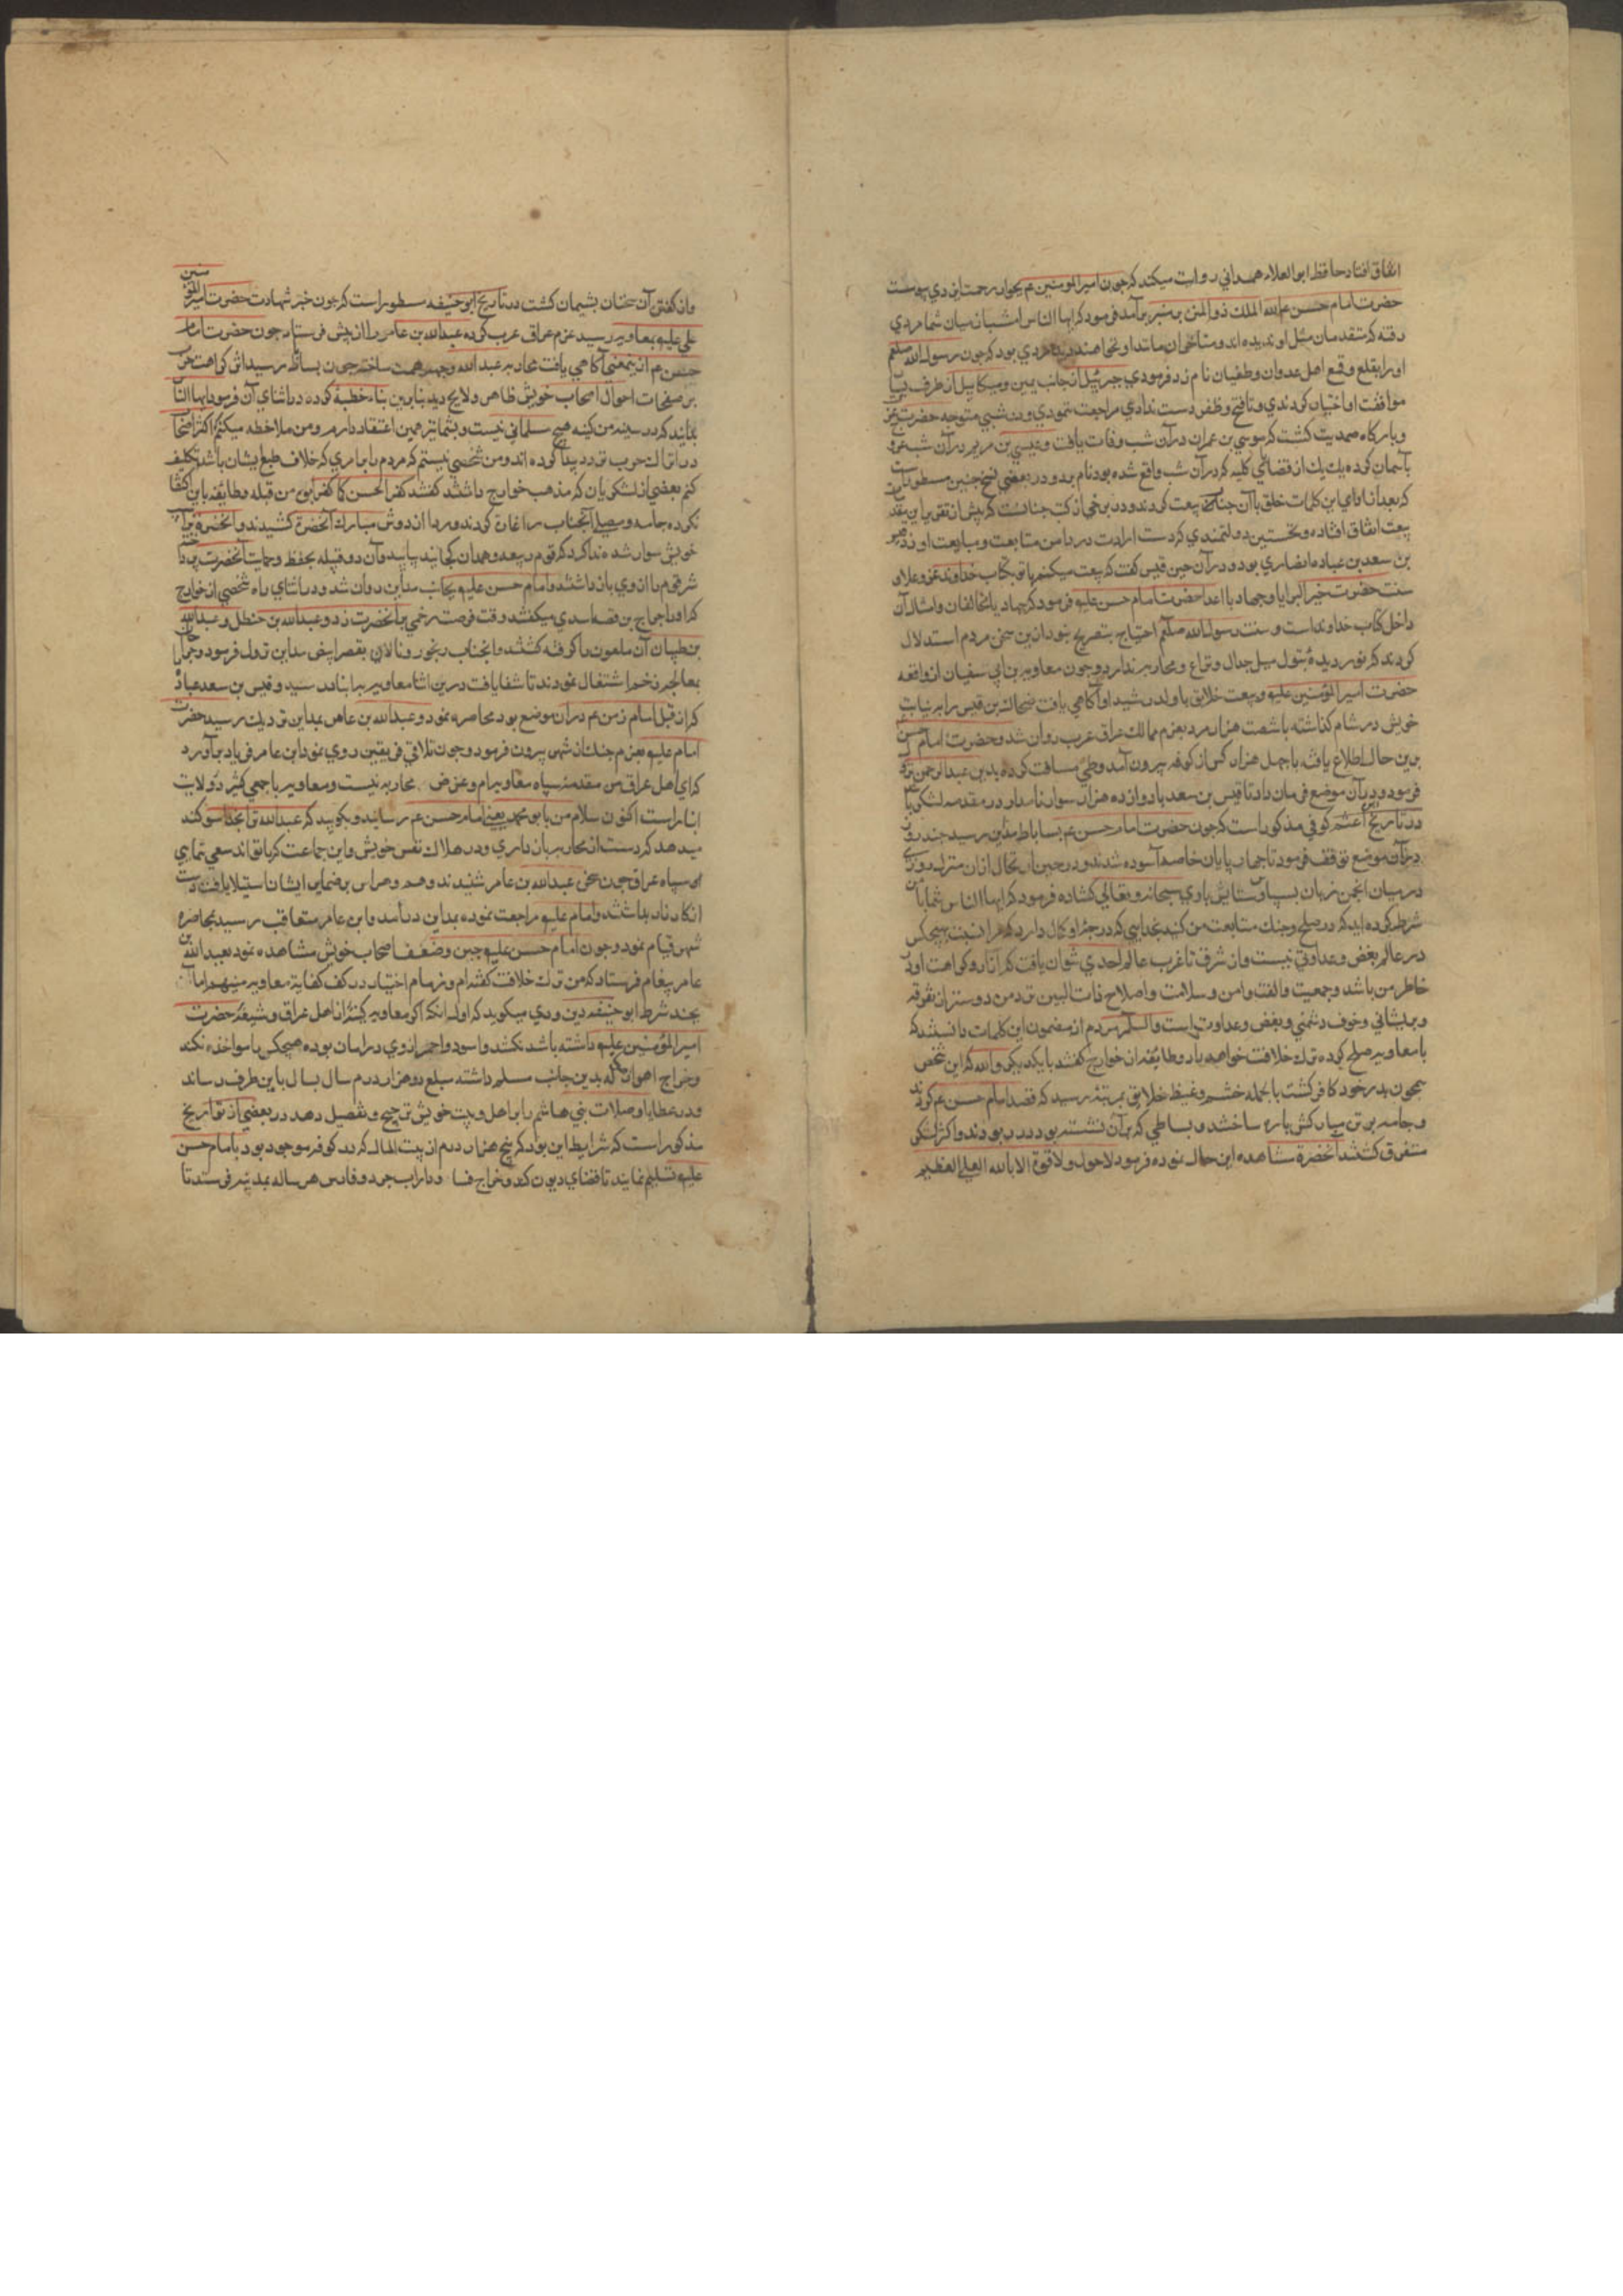 اتفاق افتاد حافظ ابو العلاء همداني روايت ميكند كه جون امير المومنين عم بجوار رحمت ايزدي پيوست
حضرت امام حسن عم الله الملك ذو المنن بر منبر بر آمد فرمود كه ايها الناس امشب از ميان شما مردي
رفته كه متقدمان مثل او نديده اند و متاخران مانند او نخواهند ديد مردي بود كه جون رسول الله صلعم
او را بقلع و قمع اهل عدوان و طغيان نام زد فرمودي جبرئيل از جانب يمين و ميكائيل از طرف يسار
موافقت او اختيار كردندي و تا فتح و ظفر دست ندادي مراجعت ننمودي و در شبي متوجه حضرت
و باركاه صمديت كشت كه موسي بن عمران در آن شب وفات يافت و عيسي بن مريم در آن شب عروج
بآسمان كرده يك يك از قضاياي كليه كه در آن شب واقع شده بود نام برد و در بعضي نسخ جنين مسطور است
كه بعد از اداي اين كلمات خلق با آن جناب بيعت كردند و در برخي از كتب جنانست كه پيش از تقرير اين مقدمه
بيعت اتفاق افتاده و نخستين دولتمندي كه دست ارادت در دامن متابعت و مبايعت او زد قيس
بن سعد بن عباده انصاري بود و در آن حين قيس كفت كه بيعت ميكنم با تو بكتاب خداوند عز و علا و
سنت حضرت خير البرايا و جهاد با اعدا حضرت امام حسن عليه فرمود كه جهاد با مخالفان و امثال آن
داخل كتاب خداونداست و سنت رسول الله صلعم احتياج بتصريح نبود از اين سخن مردم استدلال
كردند كه نور ديدۀ بتول ميل جدال و نزاع و محاربه ندارد و جون معاويه بن ابي سفيان از واقعه
حضرت امير المؤمنين عليه و بيعت خلايق با ولد رشيد او آكاهي يافت ضحاك بن قيس را به نيابت
خويش در شام كذاشته با شصت هزار مرد بعزم ممالك عراق عرب روان شد و حضرت امام حسن
برين حال اطلاع يافته با جهل هزار كس از كوفه بيرون آمد و طي مسافت كرده بدير عبد الرحمن نزول
فرمود و در آن موضع فرمان داد تا قيس بن سعد با دوازده هزار سوار نامدار در مقدمه لشكر
در تاريخ اعثم كوفي مذكور است كه جون حضرت امام حسن عم بساباط مداين رسيد جند روز
در آن موضع توقف فرمود تا جهار پايان خاصه آسوده شدند و در حين ارتحال از ان منزل روزي
در ميان انجمن زبان بسپاس و ستايش باري سبحانه و تعالي كشاده فرمود كه ايها الناس شما با من
شرط كرده ايد كه در صلح و جنك متابعت من كنيد بخدايي كه درجۀ او كمال دارد كه مرا نسبت بهيجكس
در عالم بغض و عداوتي نيست و از شرق تا غرب عالم احدي نتوان يافت كه آزار و كراهت او در
خاطر من باشد و جمعيت و الفت و امن و سلامت و اصلاح ذات البين نزد من دوستر از تفرقه
و پريشاني و خوف دشمني و بغض و عداوت است والسلم مردم از مضمون اين كلمات دانستند كه
با معاويه صلح كرده ترك خلافت خواهد داد و طايفه از خوارج كفتند با يكديكر والله كه اين شخص
همجون پدر خود كافر كشت بالجمله خشم و غيظ خلايق بمرتبه رسيد كه قصد امام حسن عم كردند
و جامه بر تن مباركش پاره ساختند و بساطي كه بر آن نشسته بود در ربودند و اكثر لشكر
متفرق كشتند آنحضرة مشاهده اين حال نموده فرمود لا حول ولا قوة الا بالله العلي العظيم
و از كفتن آن سخنان پشيمان كشت در تاريخ ابو حنيفه مسطور است كه جون خبر شهادت حضرت امير المؤمنين
علي عليه بمعاويه رسيد عزم عراق عرب كرده عبد الله بن عامر را از پيش فرستاد جون حضرت امام
حسن عم از ينمعني آكاهي يافت محاربه عبد الله وجهه همت ساخته جون بساباط رسيد اثر كراهت حرب
بر صفحات احوال اصحاب خويش ظاهر و لايح ديد بنابرين بناء خطبۀ كرده در اثناي آن فرمود ايها الناس
بدانيد كه در سينه من كينه هيج مسلماني نيست و بشما نيز همين اعتقاد دارم و من ملاحظه ميكنم كه اكثر اصحاب
در اتراك حرب تردد پيدا كرده اند و من شخصي نيستم كه مردم را بامري كه خلاف طبع ايشان باشد تكليف
كنم بعضي از لشكريان كه مذهب خوارج داشتند كفتند كفر الحسن كما كفر ابوه من قبله و طايفه باين اكتفا
نكرده جامه و مصلي آنجناب را غارة كردند و ردا از دوش مبارك آنحضرة كشيدند و آنحضرة بر اسب
خويش سوار شده ندا كرد كه قوم ربيعه و همدان كجايند بياييد و آن دو قبيله بحفظ و حمايت آنحضرت پرداخته
شر قوم را از وي باز داشتند و امام حسن عليه بجانب مداين روان شد و در اثناي راه شخصي از خوارج
كه او را جراح بن قصه اسدي ميكفتند وقت فرصت زخمي بر آنحضرت زد و عبد الله بن حنظل و عبد الله
بن ظبيان آن ملعون را كرفته كشتند و آنجناب رنجور و نالان بقصر ابيض مداين نزول فرمود و جراحان
بمعالجه زخم اشتغال نمودند تا شفا يافت درين اثنا معاويه بر انبار رسيد و قيس بن سعد عباده
كه از قبل امام زمن عم در ان موضع بود محاصره نمود و عبد الله بن عامر بمداين نزديك رسيد حضرت
امام عليه بعزم جنك از شهر بيرون فرمود و جون تلاقي فريقين روي نمود ابن عامر فرياد بر آورد
كه اي اهل عراق من مقدمه سپاه معاويه ام و غرض من محاربه نيست و معاويه با جمعي كثير در ولايت
انبار است اكنون سلام من بابو محمد يعني امام حسن عم رسانيد و بكوييد كه عبد الله ترا بخدا سوكند
ميدهد كه دست از محاربه باز داري و در هلاك نفس خويش و اين جماعت كه با تواند سعي ننمايي
سپاه عراق جون سخن عبد الله بن عامر شنيدند وهم و هراس بر ضماير ايشان استيلا يافته دست
از كارزار بداشتند و امام عليه مراجعت نموده بمداين در آمد و ابن عامر متعاقب رسيد بمحاصره
شهر قيام نمود و جون امام حسن عليه جبن و ضعف اصحاب خويش مشاهده نمود بعبد الله بن
عامر پيغام فرستاد كه من ترك خلافت كفته ام و زمام اختيار در كف كفايت معاويه مينهم اما
بچند شرط ابو حنيفه دينوري ميكويد كه اول آنكه اكر معاويه كينۀ از اهل عراق و شيعۀ حضرت
امير المؤمنين عليه داشته باشد نكشد و اسود و احمر از وي در امان بوده هيجكس را مواخذه نكند
و خراج اهواز كه بدين جانب مسلم داشته مبلغ دو هزار درم سال بسال باين طرف رساند
و در عطايا و صلات بني هاشم را بر اهل و بيت خويش ترجيح و تفضيل دهد در بعضي از تواريخ
مذكور است كه شرايط اين بود كه پنج هزار درم از بيت المال كه در كوفه موجود بود بامام حسن
عليه تسليم نمايند تا قضاي ديون كند و خراج فسا و داراب جرد و فارس هر ساله بمدينه فرستد تا